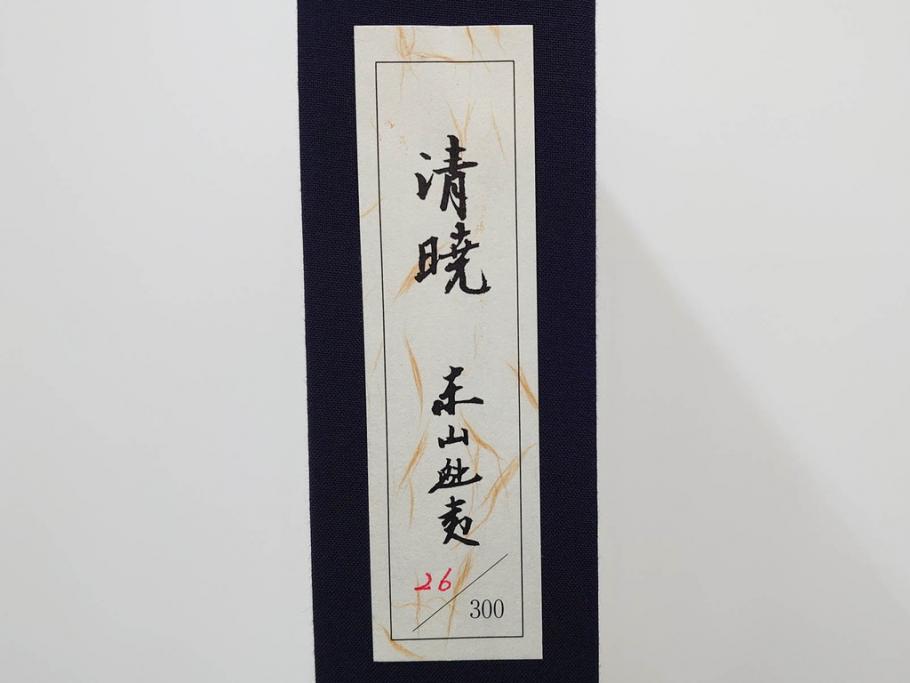 清暁
東山魁夷
26/300